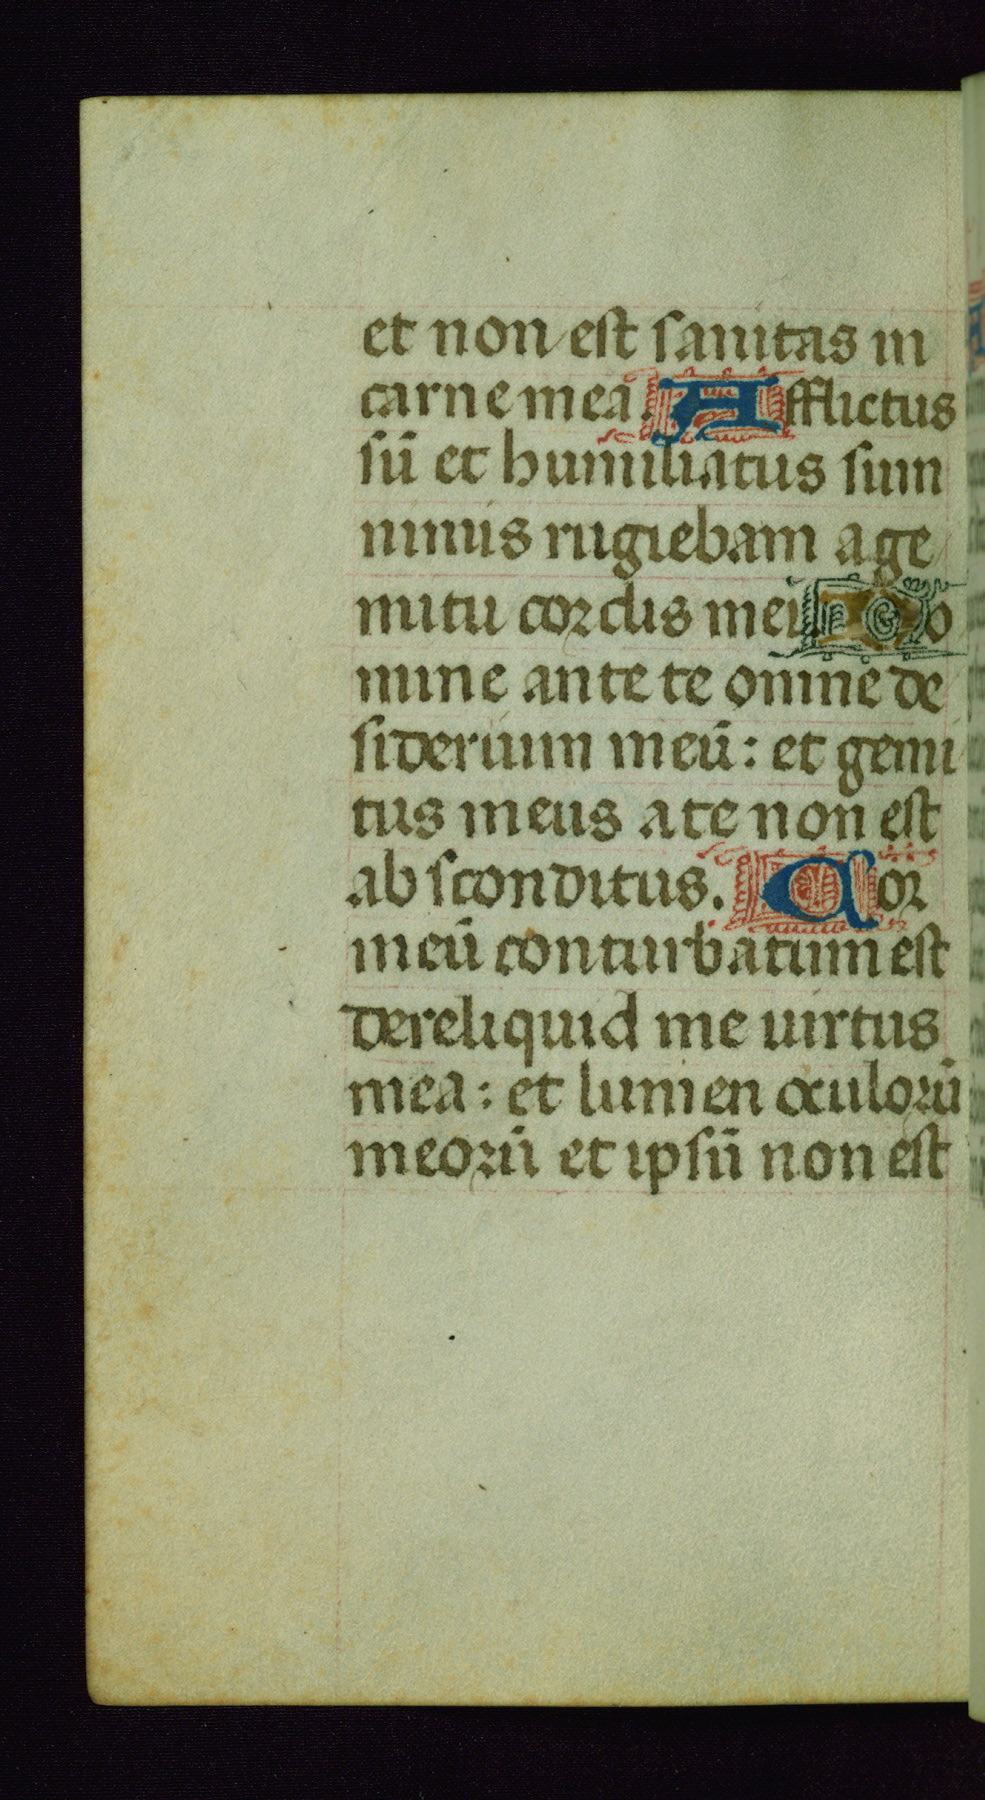 et non est sanitas in
carne mea. Afflictus
sū et humiliatus sum
nimis rugiebam a ge
mitu cordis mei. Do
mine ante te omne de
siderium meū : et gemi
tus meus a te non est
absconditus. Cor
meū conturbatum est
dereliquid me uirtus
mea : et lumen oculorū
meorū et ipsū non est